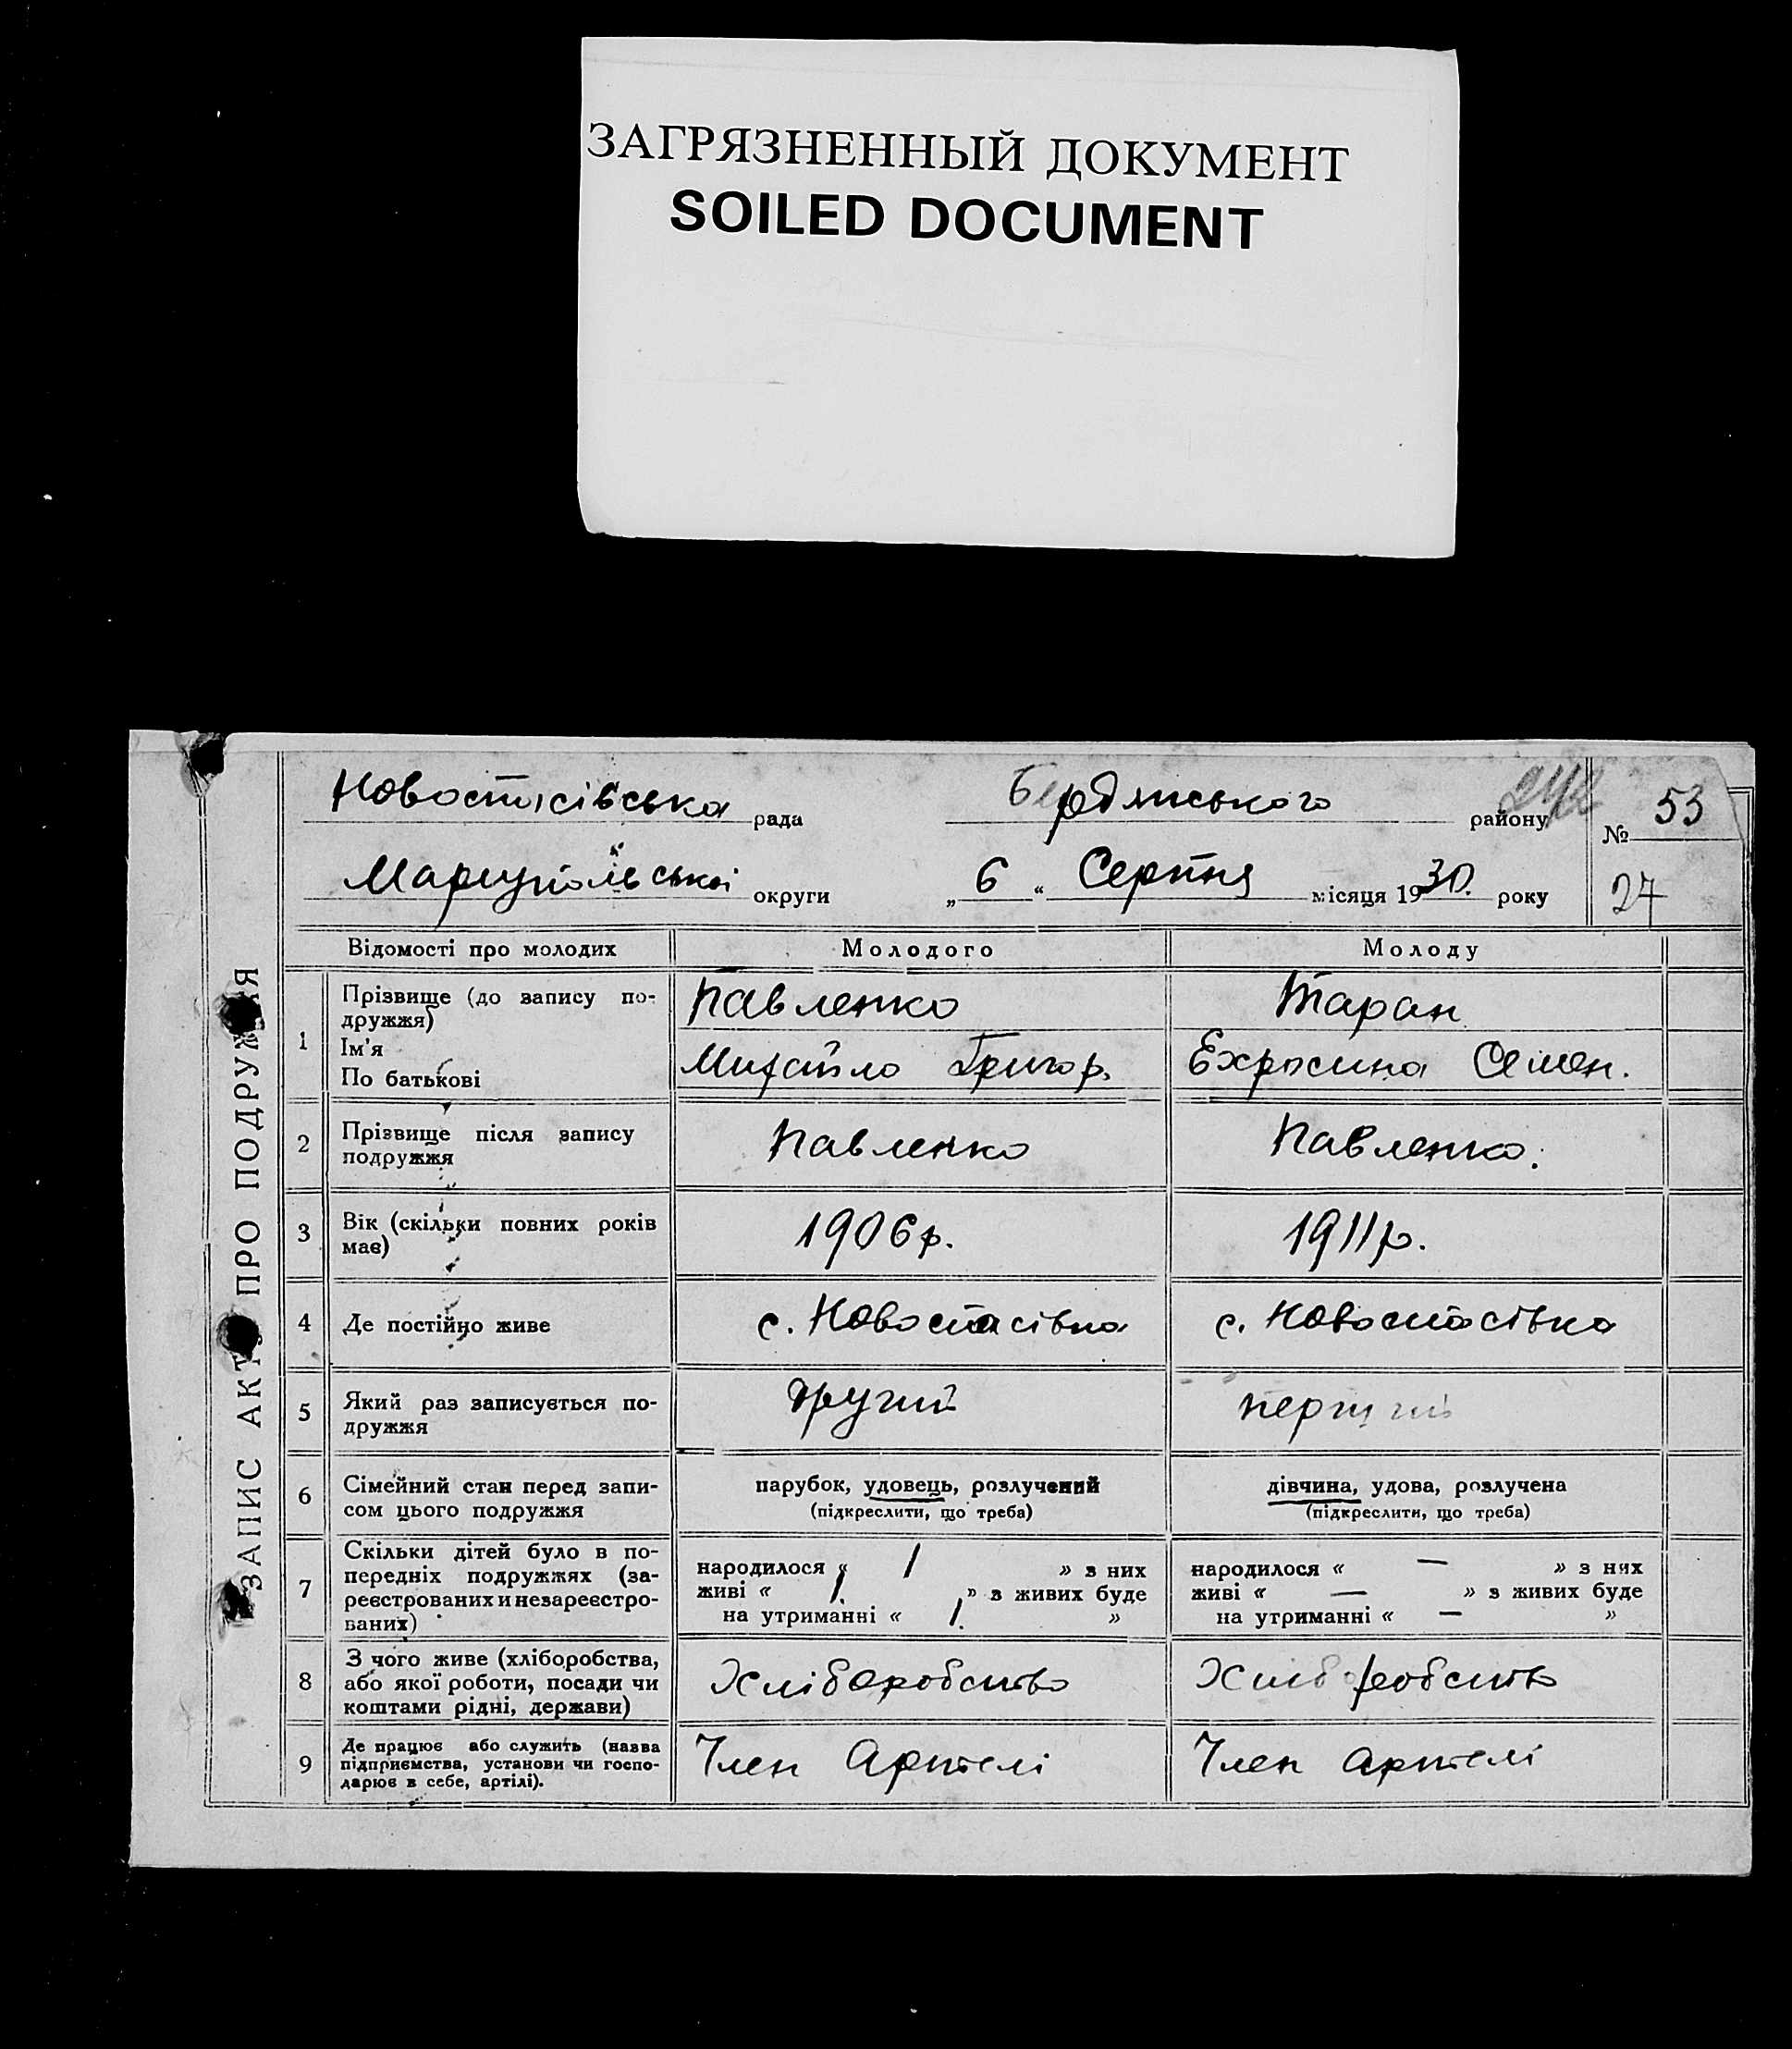 ЗАГРЯЗНЕННЫЙ ДОКУМЕНТ
SOILED DOCUMENT
ЗАПИС АКТ ПРО ПОДРУЖЖЯ
Новостасівська рада Бердянського району № 53
Маріупольської округи „ 6 “ Серпня місяця 1930. року 27
Відомості про молодих Молодого Молоду
1
Прізвище (до запису по-
дружжя)
Ім'я
По батькові
Павленко
Михайло Григор.
Таран
Ехросина Семен.
2
Прізвище після запису
подружжя
Павленко
Павленко.
3
Вік (скільки повних років
має)
1906р.
1911р.
4
Де постійно живе
с. Новостасівка
с. Новостасівка
5
Який раз записується по-
дружжя
другий
перший
6
Сімейний стан перед запи-
сом цього подружжя
парубок, удовець, розлучений
(підкреслити, що треба)
дівчина, удова, розлучена
(підкреслити, що треба)
7
Скільки дітей було в по-
передніх подружжях (за-
реєстрованих и незареєстро-
ваних)
народилося « 1 » з них
живі « 1. » з живих буде
на утриманні « 1. »
народилося « — » з них
живі « — » з живих буде
на утриманні « — »
8
З чого живе (хліборобства,
або якої роботи, посади чи
коштами рідні, держави)
Хліборобство
Хліборобство
9
Де працює або служить (назва
підприємства, установи чи госпо-
дарює в себе, артілі).
Член Артелі
Член артелі